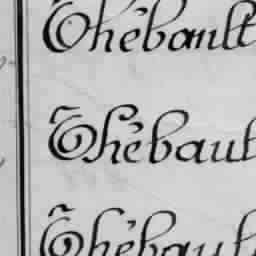 Thébault
Thébaut
Thébault